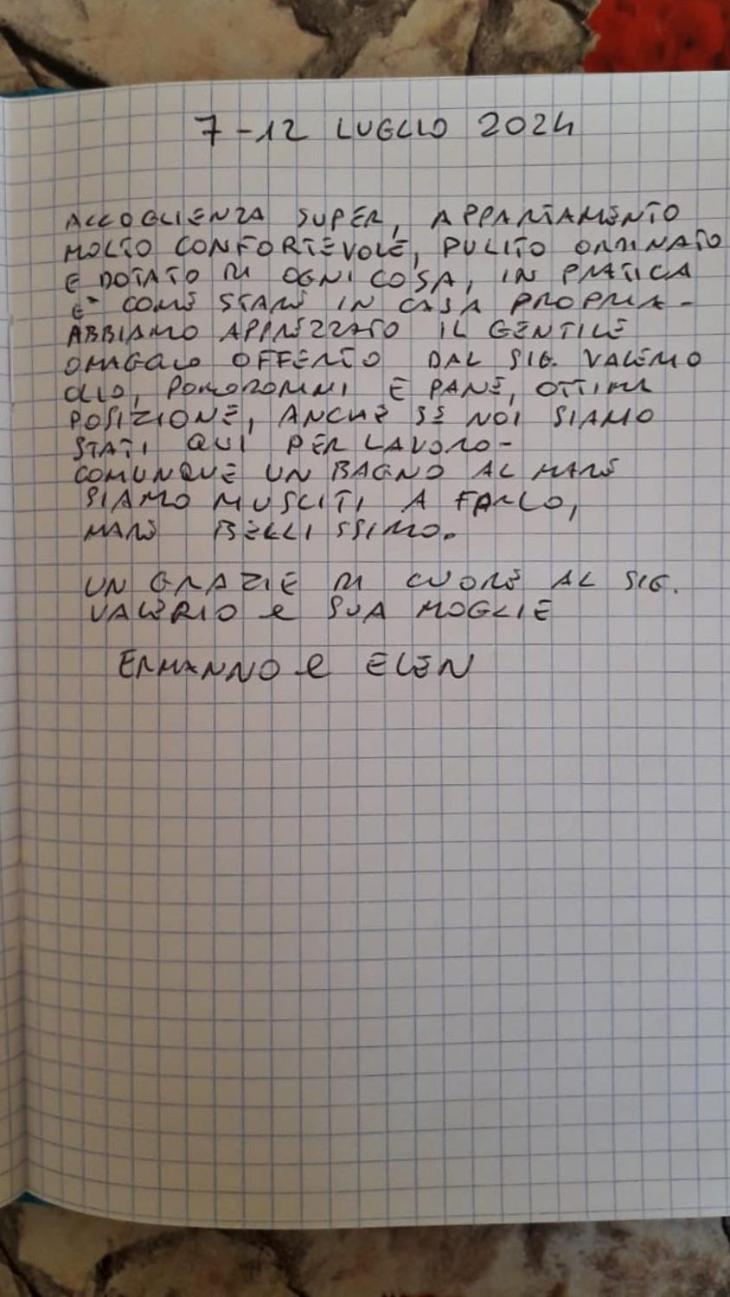 7-12 LUGLIO 2024
ACCOGLIENZA SUPER, APPARTAMENTO
MOLTO CONFORTEVOLE, PULITO ORDINATO
E DOTATO DI OGNI COSA, IN PRATICA
E' COME STARE IN CASA PROPRIA-
ABBIAMO APPREZZATO IL GENTILE
OMAGGIO OFFERTO DAL SIG. VALERIO
OLIO, POMODORINI E PANE, OTTIMA
POSIZIONE, ANCHE SE NOI SIAMO
STATI QUI PER LAVORO-
COMUNQUE UN BAGNO AL MARE
SIAMO RIUSCITI A FARLO,
MARE BELLISSIMO.
UN GRAZIE DI CUORE AL SIG.
VALERIO e SUA MOGLIE
ERMANNO e ELEN